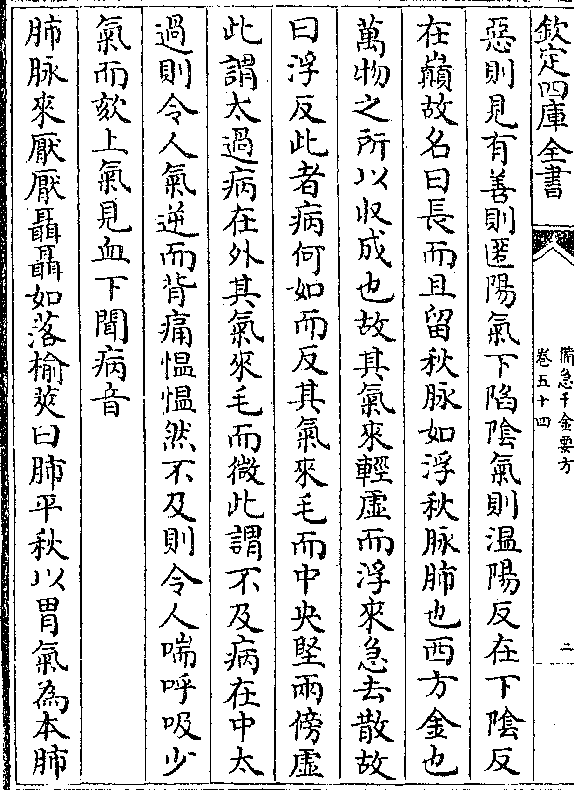 欽定四庫全書
備急千金要方
卷五十四
二
惡則見有善則匿陽氣下陷隂氣則温陽反在下隂反
在巔故名曰長而且留秋脉如浮秋脉肺也西方金也
萬物之所以収成也故其氣來輕虚而浮來急去散故
曰浮反此者病何如而反其氣來毛而中央堅兩傍虚
此謂太過病在外其氣來毛而微此謂不及病在中太
過則令人氣逆而背痛愠愠然不及則令人喘呼吸少
氣而欬上氣見血下聞病音
肺脉來厭厭聶聶如落榆莢曰肺平秋以胃氣為本肺